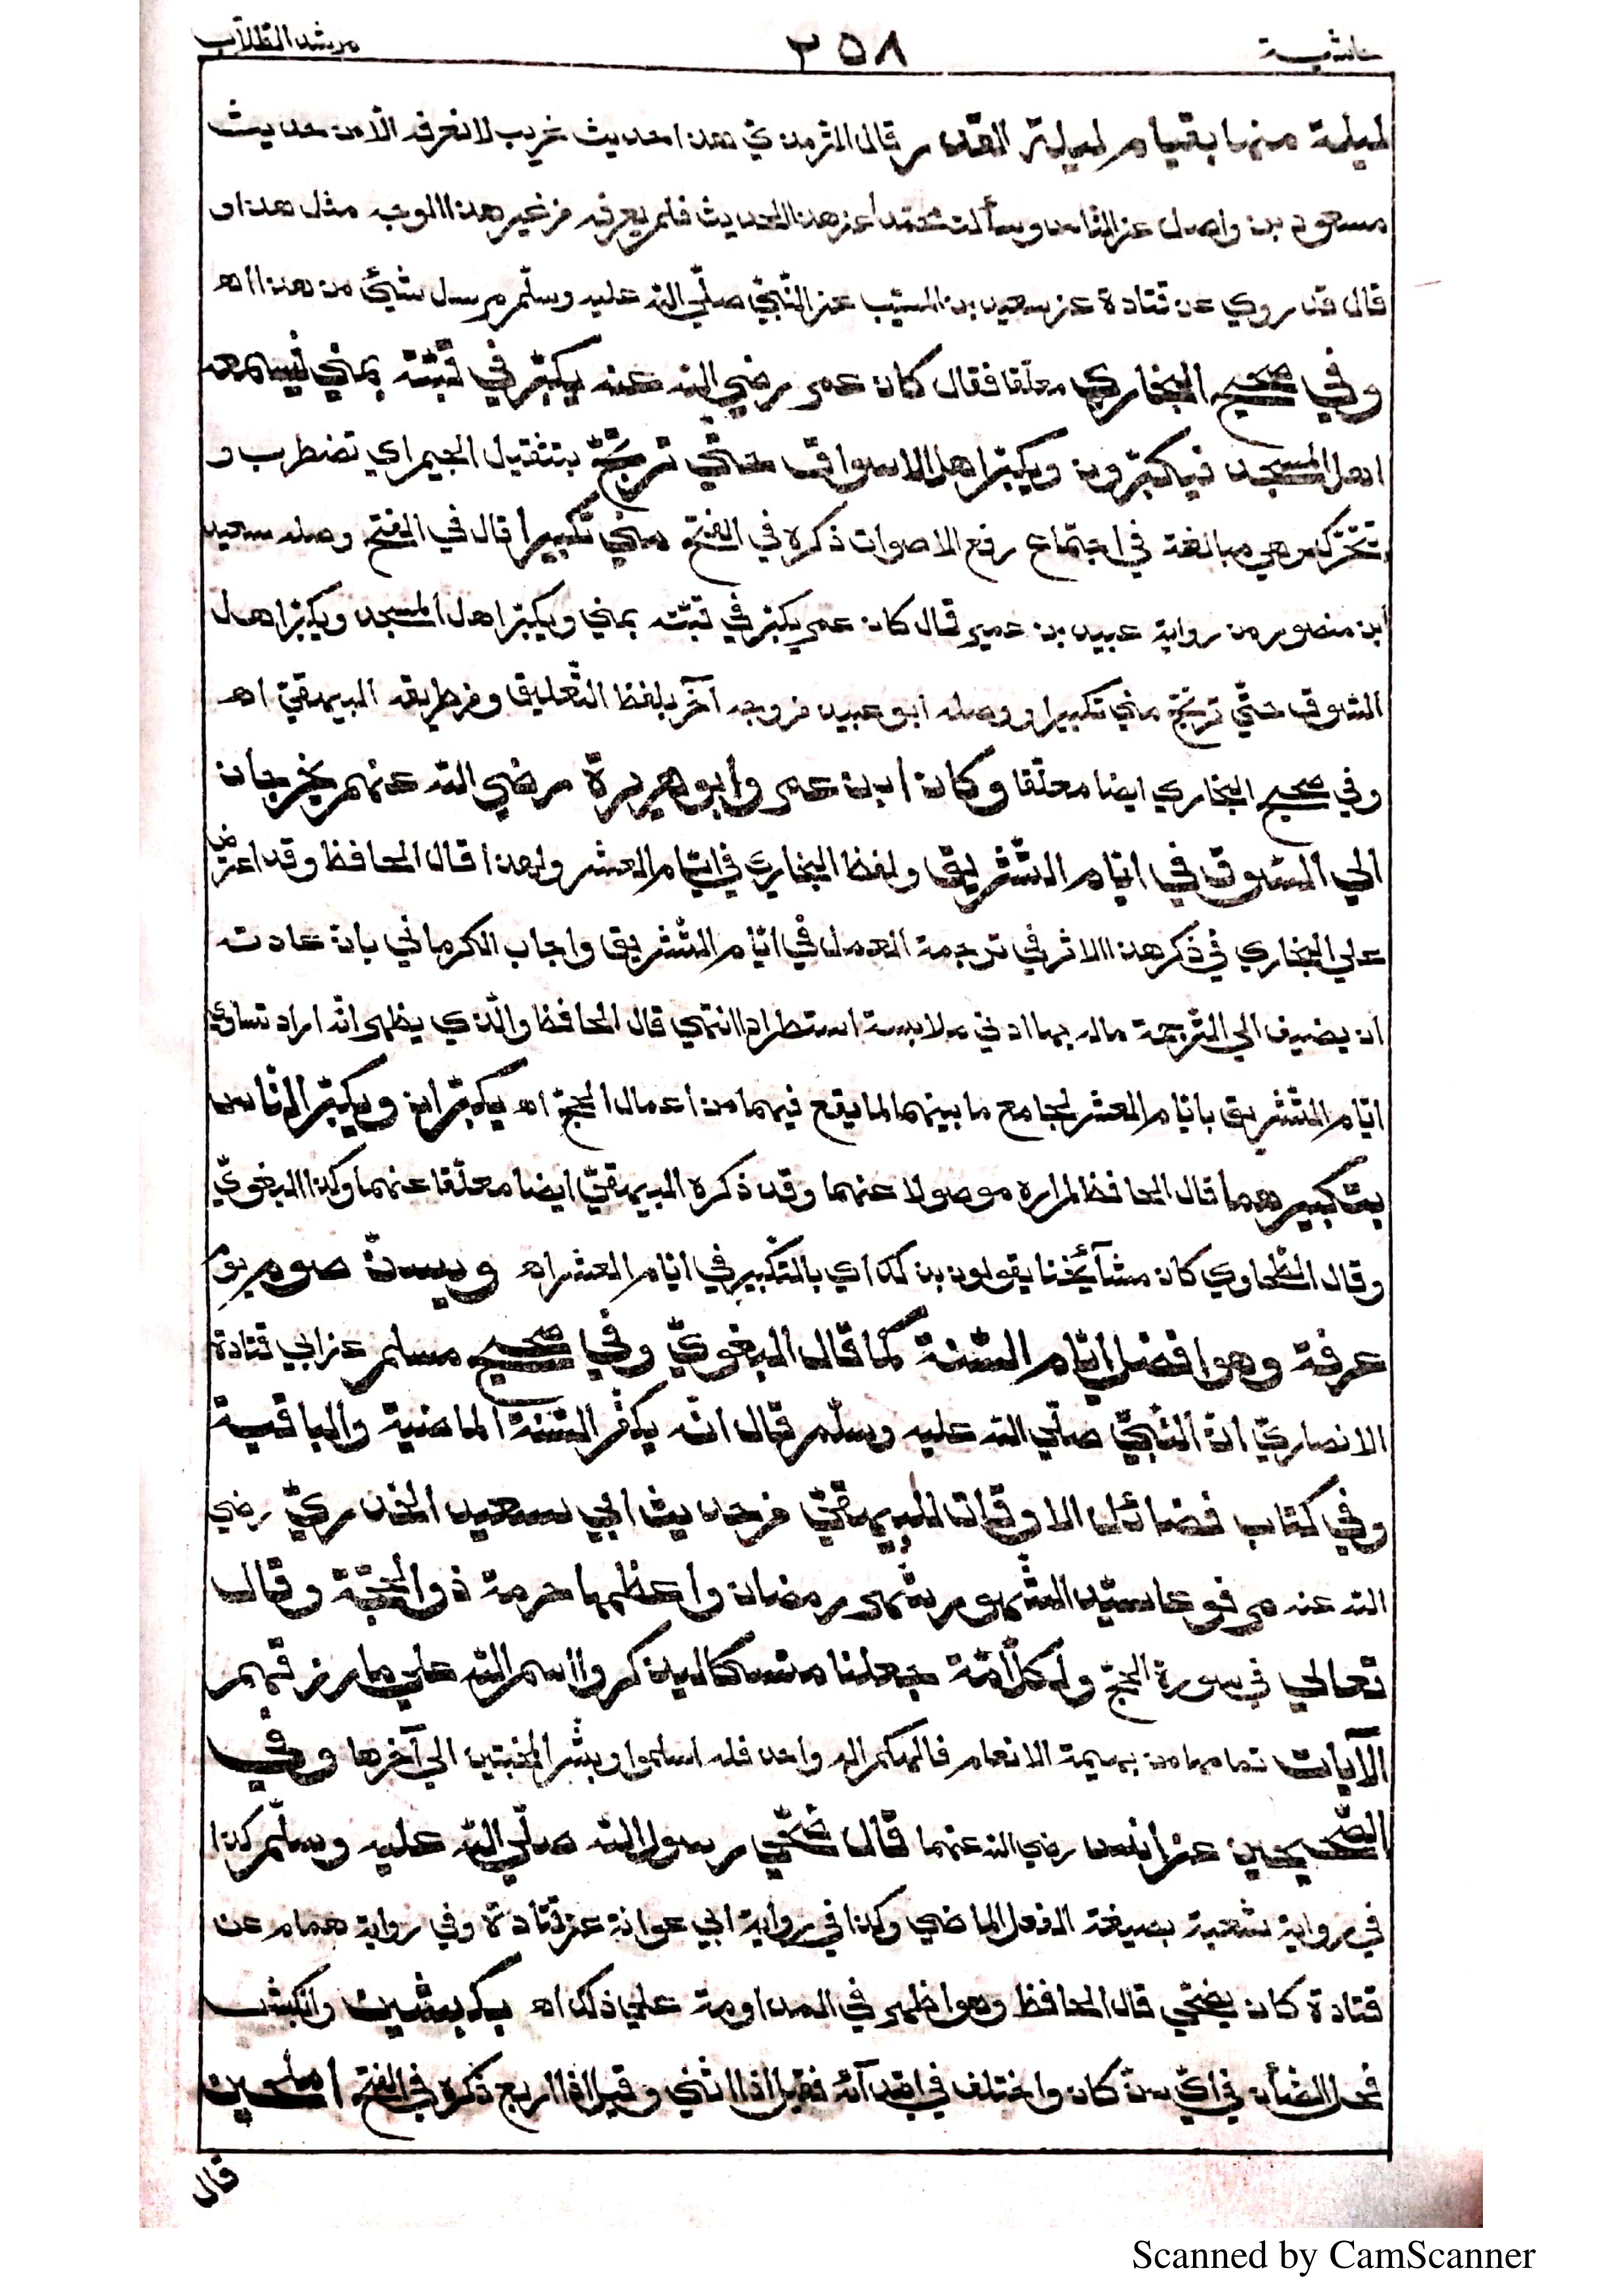 حاشية ٢٥٨ مرشد الطلاب
ليلة منها بقيام ليلة القدر قال الترمذي هذا حديث غريب لا نعرفه الا من حديث
مسعود بن واصل عن النهاس وسألت محمدا عن هذا الحديث فلم يعرفه من غير هذا الوجه مثل هذا و
قال قد روي عن قتادة عن سعيد بن المسيّب عن النّبيّ صلّي اللّه عليه وسلّم مرسل شيئ من هذا اهـ
وفي صحيح البخاري معلقا فقال كان عمر رضي اللّه عنه يكبّر في قبّته بمني فيسمعه
اهل المسجد فيكبّرون ويكبّر اهل الاسواق حتّي ترتجّ بتثقيل الجيم اي تضطرب و
تتحرّك وهي مبالغة في اجتماع رفع الاصوات ذكره في الفتح مني تكبيرا قال في الفتح وصله سعيد
ابن منصور من رواية عبيد بن عمير قال كان عمر يكبّر في قبّته بمني ويكبّر اهل المسجد ويكبّر اهل
السّوق حتّي ترتجّ مني تكبيرا ووصله ابو عبيد من وجه آخر بلفظ التّعليق ومن طريقه البيهقيّ اهـ
وفي صحيح البخاري ايضا معلّقا وكان ابن عمر وابو هريرة رضي اللّه عنهم يخرجان
الي السّوق في ايّام التّشريق ولفظ البخاري في ايّام العشر ولهذا قال الحافظ وقد اعترض
علي البخاري في ذكر هذا الاثر في ترجمة العمل في ايّام التّشريق واجاب الكرماني بانّ عادته
ان يضيف الي التّرجمة ما له بها ادني ملابسة استطرادا انتهي قال الحافظ والّذي يظهر انّه اراد تساوي
ايّام التّشريق بايّام العشر لجامع ما بينهما لما يقع فيهما من اعمال الحجّ اهـ يكبّران ويكبّر النّاس
بتكبيرهما قال الحافظ لم اره موصولا عنهما وقد ذكره البيهقيّ ايضا معلّقا عنهما وكذا البغويّ
وقال الطّحاوي كان مشآئخنا يقولون بذلك اي بالتّكبير في ايّام العشر اهـ ويسنّ صوم يوم
عرفة وهو افضل ايّام السّنة كما قال البغويّ وفي صحيح مسلم عن ابي قتادة
الانصاريّ انّ النّبيّ صلّي اللّه عليه وسلّم قال انّه يكفّر السّنة الماضية والباقية
وفي كتاب فضائل الاوقات للبيهقيّ من حديث ابي سعيد الخدريّ رضي
اللّه عنه مرفوعا سيّد الشّهور شهر رمضان واعظمها حرمة ذو الحجّة وقال
تعالي في سورة الحجّ ولكلّ امّة جعلنا منسكا ليذكروا اسم اللّه علي ما رزقهم
الآيات تمامها من بهيمة الانعام فالهكم اله واحد فله اسلموا وبشّر المخبتين الي آخرها وفي
الصّحيحين عن انس رضي اللّه عنهما قال ضحّي رسول اللّه صلّي اللّه عليه وسلّم كذا
في رواية شعبة بصيغة الفعل الماضي وكذا في رواية ابي عوانة عن قتادة وفي رواية همام عن
قتادة كان يضحّي قال الحافظ وهو اظهر في المداومة علي ذلك اهـ بكبشين والكبش
فحل الضّأن في ايّ سنّ كان واختلف في ابتدآئه فقيل اذا اثني وقيل اذا اربع ذكره في الفتح املحين
قال
Scanned by CamScanner